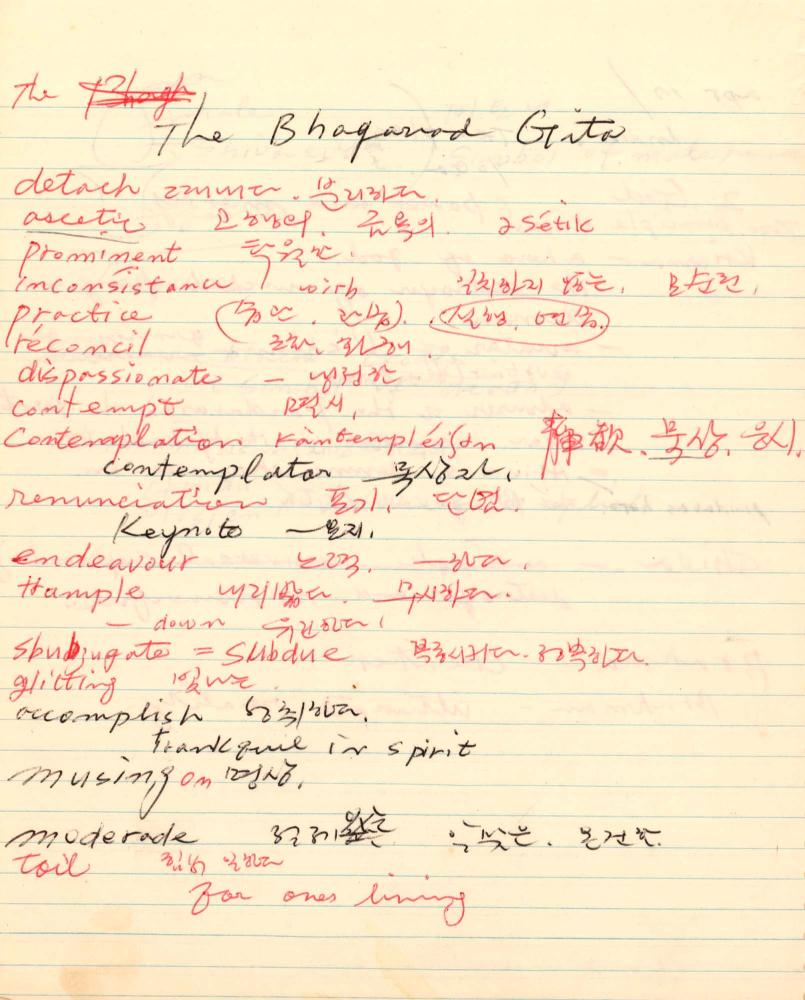 the
The Bhagavad Gita
detach 떼내다. 분리하다.
ascetic 고행의. 금욕의. əsétik
prominent 탁월한.
inconsistance with 일치하지 않는, 모순된,
practice (습관. 관습). 실행, 연습.
réconcil 조화, 화해.
dispassionate – 냉정한
contempt 멸시,
Contemplation kàntempléiʃən 묵상. 응시.
contemplator 묵상가.
renunciation 포기. 단념.
Keynote
endeavour 노력. —하다.
trample 내리밟다. 무시하다.
— down 유린하다.
subjugate = subdue 복종시키다. 정복하다.
glitting 빛나는
accomplish 성취하다.
trankquil in spirit
musing on 명상.
moderade 알맞은. 온건한.
toil 힘써 일하다
for ones living